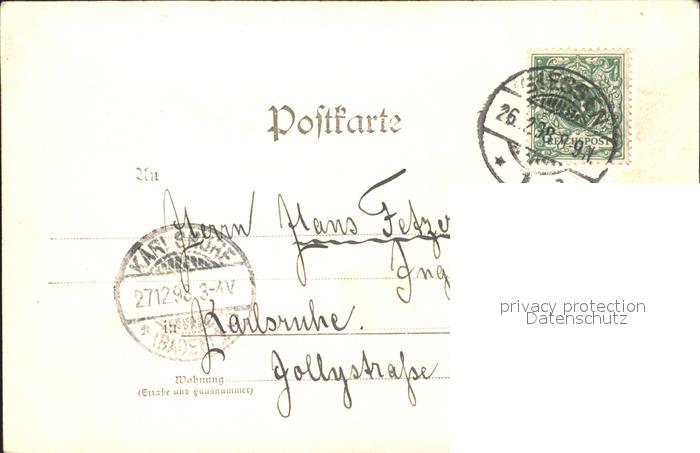 GIESSEN
26.12.98 8-9N
REICHSPOST
Postkarte
An
Herrn Hans Fetzer
Ing
KARLSRUHE
27.12.98. 3-4V
(BADEN)
in Karlsruhe.
Jollystraße
Wohnung
(Straße und Hausnummer)
privacy protection
Datenschutz